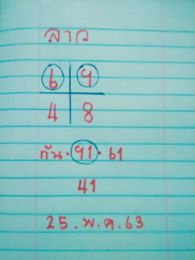 ลาว
6 9
4 8
กัน . 91 . 61
41
25 . พ . ค . 63